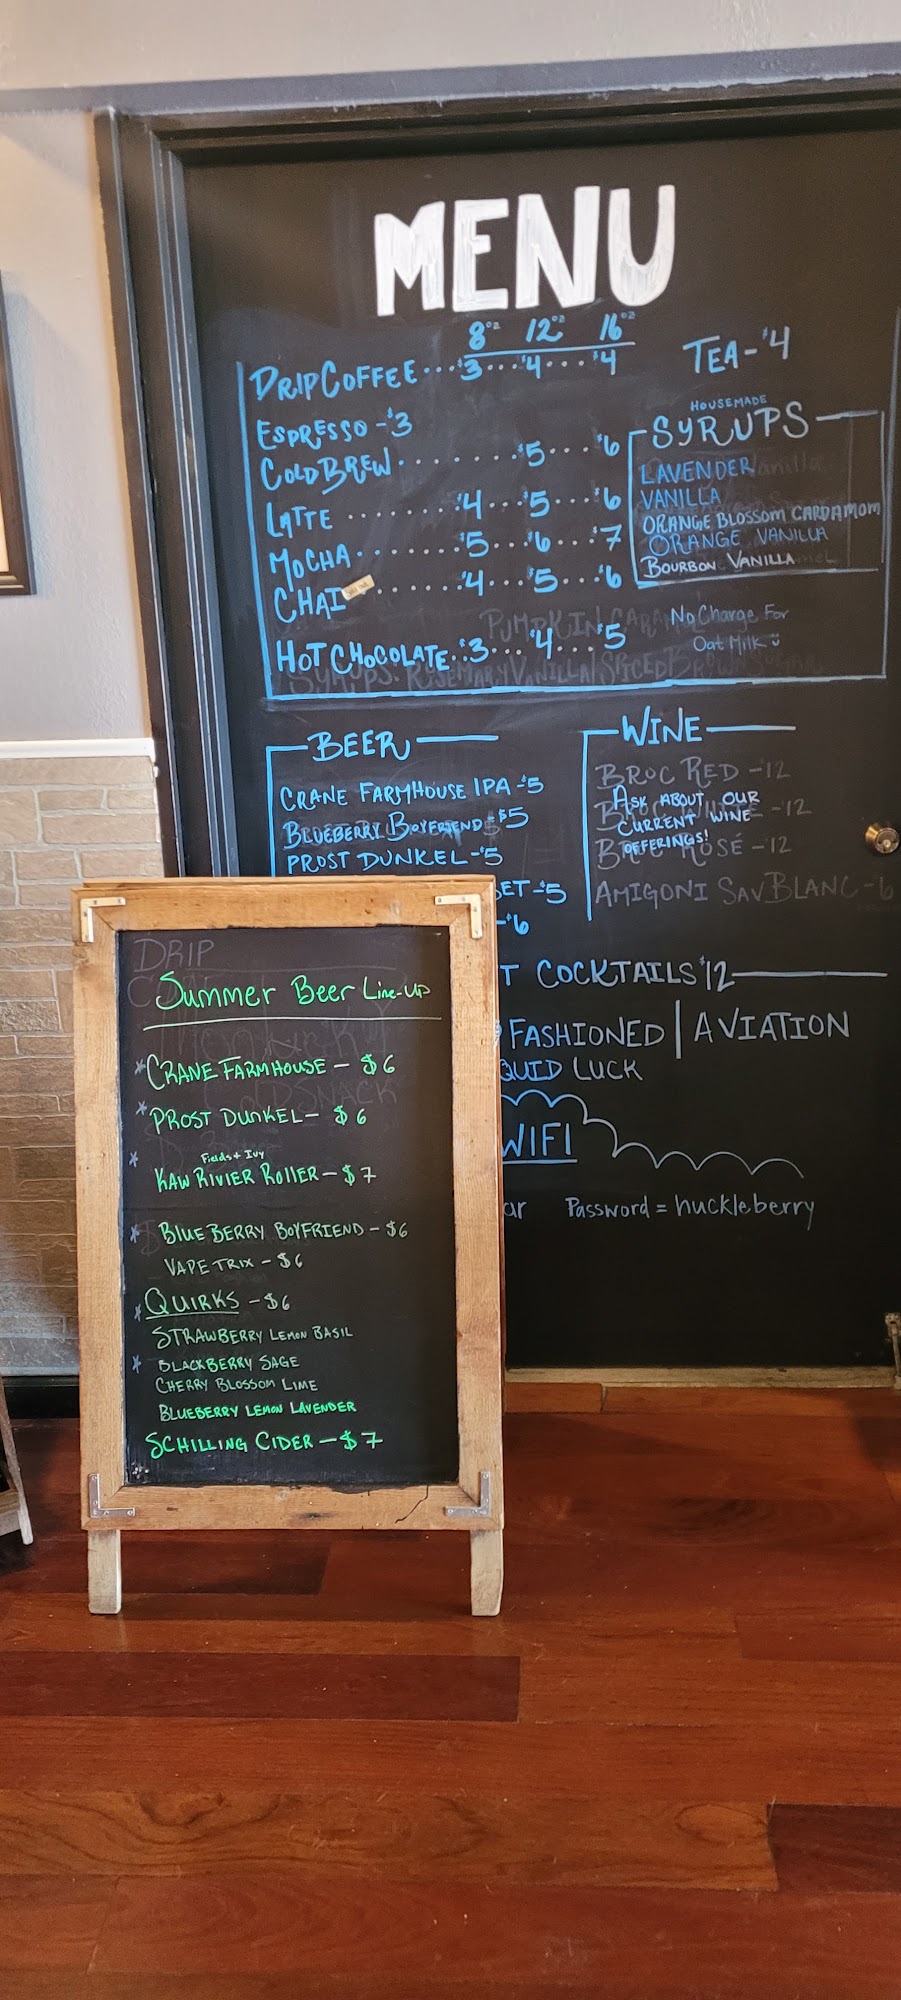 MENU
8oz 12oz 16oz
DRIP COFFEE...$3...$4....$4
TEA-$4
ESPRESSO-$3
COLD BREW........$5....$6
LATTE........$4...$5...$6
MOCHA........$5...$6...$7
CHAI........$4...$5...$6
HOT CHOCOLATE..$3...$4...$5
HOUSEMADE
SYRUPS
LAVENDER
VANILLA
ORANGE BLOSSOM CARDAMOM
ORANGE VANILLA
BOURBON VANILLA
No Charge For
Oat Milk
PUMPKIN CARAMEL
SYRUPS: ROSEMARY VANILLA/SPICED BROWN SUGAR
BEER
CRANE FARMHOUSE IPA-$5
BLUEBERRY BOYFRIEND-$5
PROST DUNKEL-$5
ET-$5
-$6
WINE
BROC RED-12
ASK ABOUT OUR
CURRENT WINE
OFFERINGS!
-12
ROSÉ-12
AMIGONI SAV BLANC-6
T COCKTAILS $12
FASHIONED | AVIATION
QUID LUCK
WIFI
ar Password = huckleberry
DRIP
Summer Beer Line-Up
*CRANE FARMHOUSE - $6
*PROST DUNKEL - $6
Fields & Ivy
* KAW RIVIER ROLLER - $7
* BLUEBERRY BOYFRIEND - $6
VAPE TRIX - $6
*QUIRKS - $6
STRAWBERRY LEMON BASIL
* BLACKBERRY SAGE
CHERRY BLOSSOM LIME
BLUEBERRY LEMON LAVENDER
SCHILLING CIDER - $7